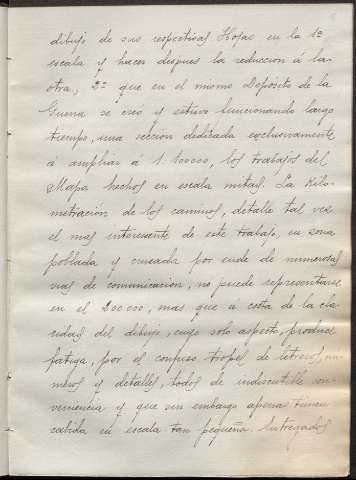 dibujo de sus respectivas Hojas en la 1ª
escala y hacer despues la reducción á la
otra, 2ª que en el mismo Depósito de la
Guerra se creó y estuvo funcionando largo
tiempo, una seccion dedicada exclusivamente
á ampliar á 1.100000, los trabajos del
Mapa hechos en escala mitad. La Kilo-
metración de los caminos, detalle tal vez
el mas interesante de este trabajo, en zona
poblada y cruzada por ende de numerosas
vias de comunicacion, no puede representarse
en el 200.000, mas que á costa de la cla-
ridad del dibujo, cuyo solo aspecto, produce
fatiga, por el confuso tropel de letreros, nú-
meros y detalles, todos de indiscutible con-
veniencia y que sin embargo apenas tienen
cabida en escala tan pequeña. Entregados